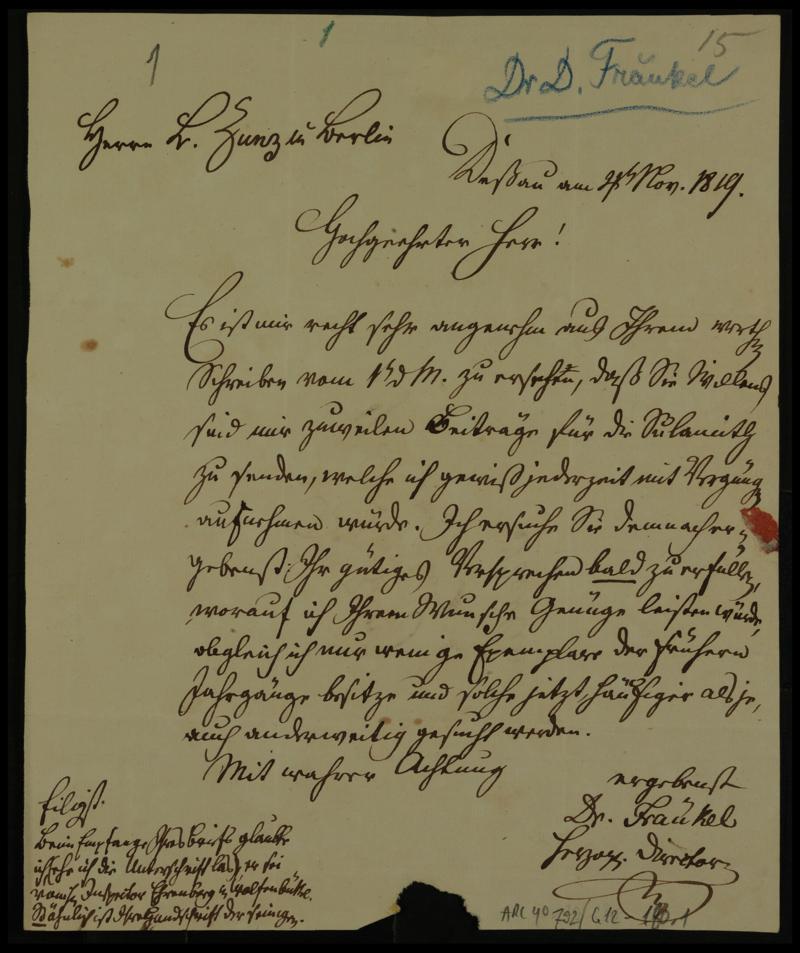 1
1
15
Dr D. Fränkel
Herrn L. Zunz in Berlin
Deßau am Nov. 1819.
Hochgeehrter Herr!
Es ist mir recht sehr angenehm aus Ihrem werth
Schreiben vom 1t d M. zu ersehen, daß Sie Willens
sind mir zuweilen Beiträge für die Sulamith
zu senden, welche ich gewiß jederzeit mit Vergnüg
aufnehmen würde. Ich ersuche Sie demnach er-
gebenst Ihr gütiges Versprechen bald zu erfüllen,
worauf ich Ihrem Wunsche Genüge leisten würde,
obgleich ich nur wenige Exemplare der frühern
Jahrgänge besitze und solche jetzt, häufiger als je,
auch anderweitig gesucht werden.
Mit wahrer Achtung
ergebenst
Dr. Fränkel
Herzogl. Director
Eiligst.
Beim Empfange Ihres briefs glaubte
ich ehe ich die Unterschrift las, er sei
vom Hn Inspector Ehrenberg in Wolfenbüttel.
So ähnlich ist Ihre Handschrift der seinigen.
ARC 4o 792/ G12 -